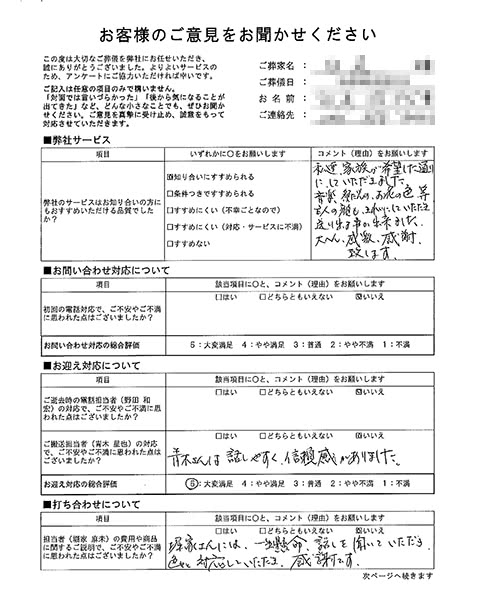 お客様のご意見をお聞かせください
この度は大切なご葬儀を弊社にお任せいただき、
誠にありがとうございました。よりよいサービスの
ため、アンケートにご協力いただければ幸いです。
ご記入は任意の項目のみで構いません。
「対面では言いづらかった」「後から気になることが
出てきた」など、どんな小さなことでも、ぜひお聞か
せください。ご意見を真摯に受け止め、誠意をもって
対応させていただきます。
ご葬家名:
ご葬儀日:
お名前:
ご連絡先:
■弊社サービス
項目 いずれかに〇をお願いします コメント(理由)をお願いします
弊社のサービスはお知り合いの方に
もおすすめいただける品質でした
か?
☒知り合いにすすめられる
□条件つきですすめられる
□すすめにくい(不幸ごとなので)
□すすめにくい(対応・サービスに不満)
□すすめない
私達家族が希望した通り
にしていただきました。
音楽
お花の色等
大へん、感激、感謝
致します。
■お問い合わせ対応について
項目 該当項目に〇と、コメント(理由)をお願いします
初回の電話対応で、ご不安やご不満
に思われた点はございましたか?
□はい □どちらともいえない ☒いいえ
お問い合わせ対応の総合評価 5:大変満足 4:やや満足 3:普通 2:やや不満 1:不満
■お迎え対応について
項目 該当項目に〇と、コメント(理由)をお願いします
ご逝去時の電話担当者(野田 和
宏)の対応で、ご不安やご不満に思
われた点はございましたか?
□はい □どちらともいえない ☒いいえ
ご搬送担当者(青木 星也)の対応
で、ご不安やご不満に思われた点は
ございましたか?
□はい □どちらともいえない ☒いいえ
青木さんは話しやすく、信頼感がありました。
お迎え対応の総合評価 5:大変満足 4:やや満足 3:普通 2:やや不満 1:不満
■打ち合わせについて
項目 該当項目に〇と、コメント(理由)をお願いします
担当者(堀家 麻未)の費用や商品
に関するご説明で、ご不安やご不満
に思われた点はございましたか?
□はい □どちらともいえない ☒いいえ
堀家さんには、一生懸命、話しを聞いていただき、
色々と対応していただき、感謝です。
次ページへ続きます